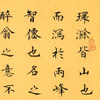 環滁皆山也
而瀉於兩
智僊也名之
醉翁之意不